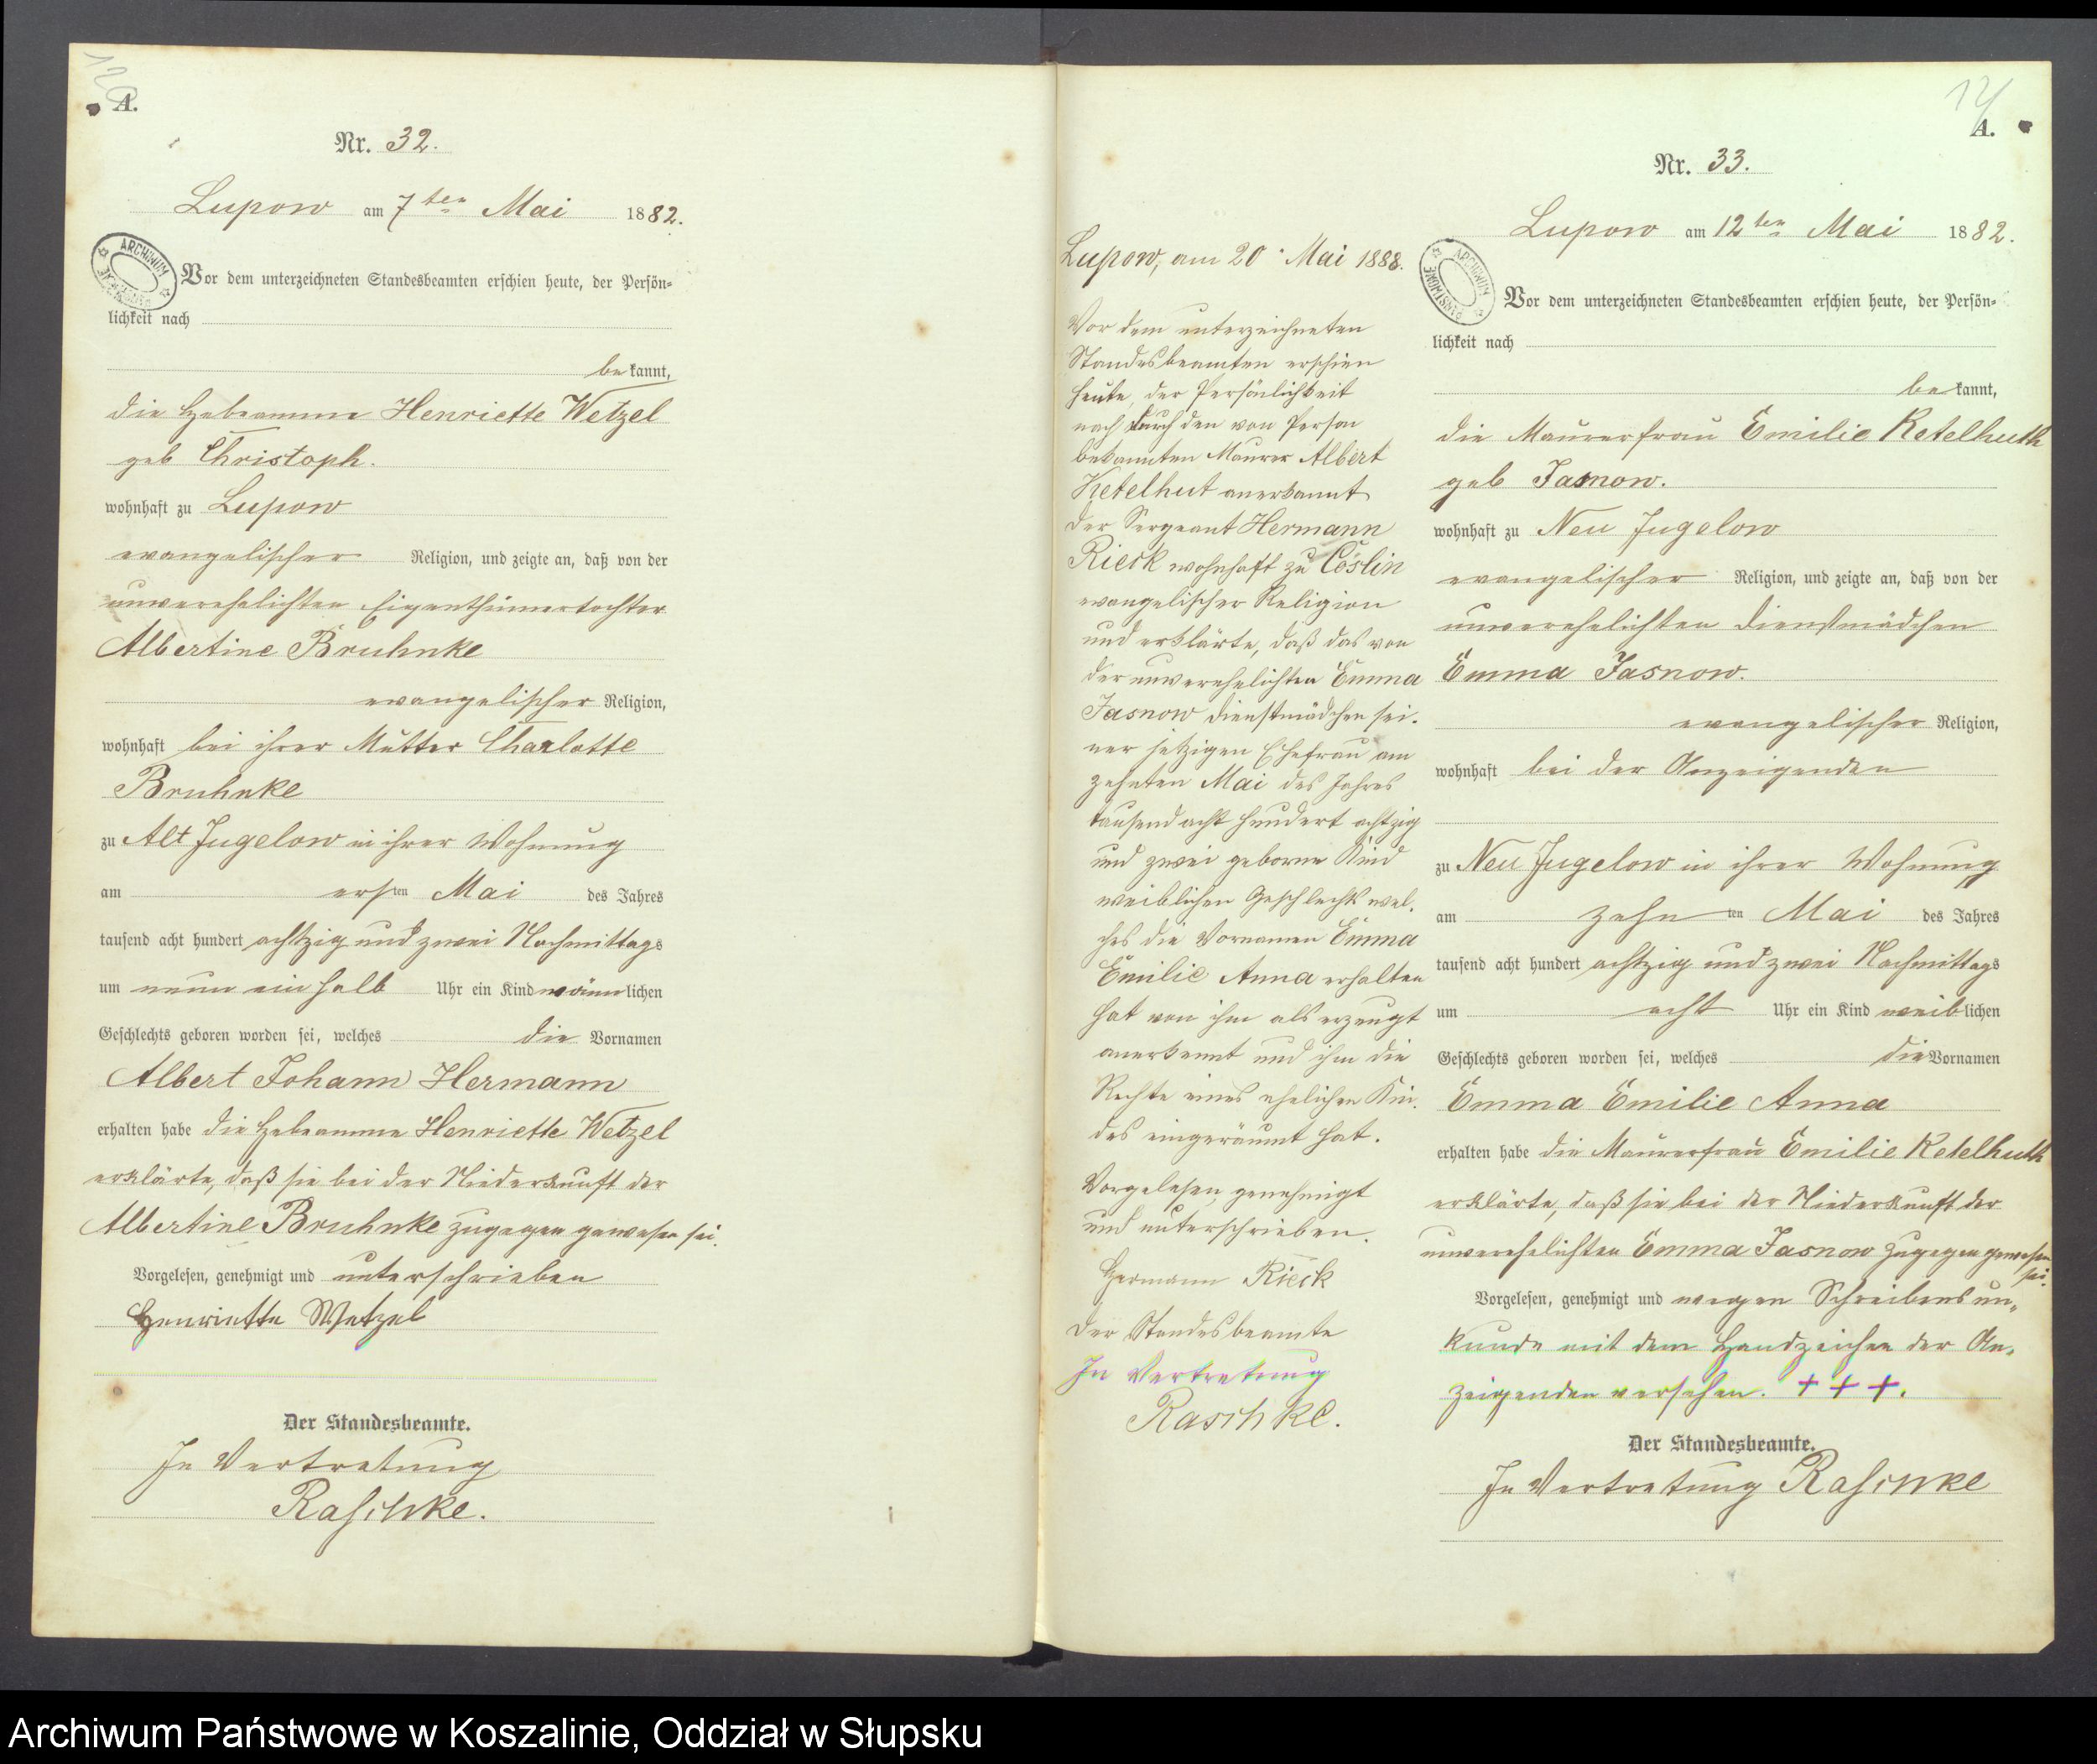 A.
Nr. 32.
Lupow am 7ten Mai 1882.
Vor dem unterzeichneten Standesbeamten erschien heute, der Persön-
lichkeit nach
bekannt,
die Hebeamme Henriette Wetzel
geb Christoph.
wohnhaft zu Lupow
evangelischer Religion, und zeigte an, daß von der
unverehelichten Eigenthümertochter
Albertine Bruhnke
evangelischer Religion,
wohnhaft bei ihrer Mutter Charlotte
Bruhnke
zu Alt Jugelow in ihrer Wohnung
am ersten Mai des Jahres
tausend acht hundert achtzig und zwei Nachmittags
um neun ein halb Uhr ein Kind männlichen
Geschlechts geboren worden sei, welches die Vornamen
Albert Johann Hermann
erhalten habe die Hebeamme Henriette Wetzel
erklärte, daß sie bei der Niederkunft der
Albertine Bruhnke zugegen gewesen sei.
Vorgelesen, genehmigt und unterschrieben
Henriette Wetzel
Der Standesbeamte.
In Vertretung
Raschke.
Lupow, am 20. Mai 1888.
Vor dem unterzeichneten
Standesbeamten erschien
heute, der Persönlichkeit
nach durch den von Person
bekannten Maurer Albert
Ketelhut anerkannt
der Sergeant Hermann
Rieck wohnhaft zu Cöslin
evangelischer Religion
und erklärte, daß das von
der unverehelichten Emma
Jasnow Dienstmädchen sei-
ner jetzigen Ehefrau am
zehnten Mai des Jahres
tausend acht hundert achtzig
und zwei geborne Kind
weiblichen Geschlechts wel-
ches die Vornamen Emma
Emilie Anna erhalten
hat von ihm als erzeugt
anerkennt und ihm die
Rechte eines ehelichen Kin-
des eingeräumt hat.
Vorgelesen genehmigt
und unterschrieben.
Hermann Rieck
Der Standesbeamte
In Vertretung
Raschke.
A.
Nr. 33.
Lupow am 12ten Mai 1882.
Vor dem unterzeichneten Standesbeamten erschien heute, der Persön-
lichkeit nach
bekannt,
die Maurerfrau Emilie Ketelhuth
geb Jasnow.
wohnhaft zu Neu Jugelow
evangelischer Religion, und zeigte an, daß von der
unverehelichten Dienstmädchen
Emma Jasnow.
evangelischer Religion,
wohnhaft bei der Anzeigenden
zu Neu Jugelow in ihrer Wohnung
am zehnten Mai des Jahres
tausend acht hundert achtzig und zwei Nachmittags
um acht Uhr ein Kind weiblichen
Geschlechts geboren worden sei, welches die Vornamen
Emma Emilie Anna
erhalten habe die Maurerfrau Emilie Ketelhuth
erklärte, daß sie bei der Niederkunft der
unverehelichten Emma Jasnow zugegen gewesen
sei.
Vorgelesen, genehmigt und wegen Schreibensun-
kunde mit dem Handzeichen der An-
zeigenden versehen. + + +.
Der Standesbeamte.
In Vertretung Raschke
Archiwum Państwowe w Koszalinie, Oddział w Słupsku